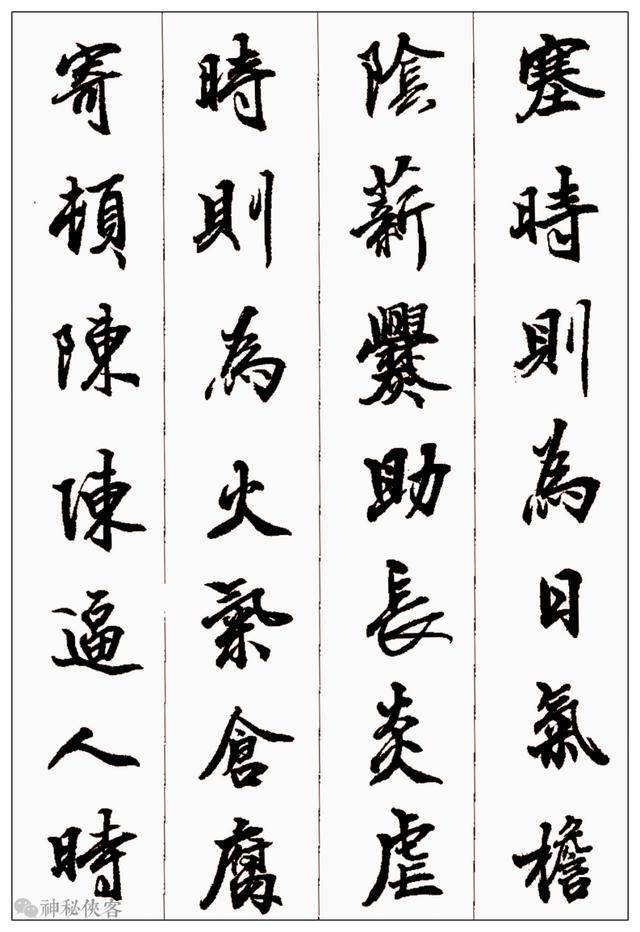 塞時則為日氣檐
陰薪爨助長炎虐
時則為火氣倉腐
寄頓陳陳逼人時
神秘俠客